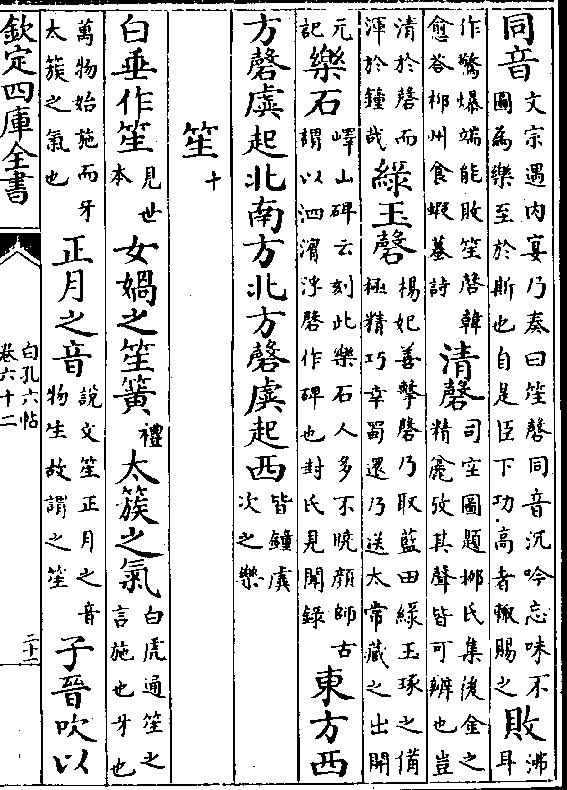 同音文宗遇内宴乃奏曰笙磬同音沉吟忘味不圖為樂至於斯也自是臣下功高者輒賜之敗沸耳
作驚爆端能敗笙磬韓愈答柳州食蝦蟇詩清磬司空圖題柳氏集後金之精麄攷其聲皆可辨也豈
清於磬而渾於鐘哉緑玉磬楊妃善擊磬乃取藍田緑玉琢之備極精巧幸蜀還乃送太常藏之出開
元記樂石嶧山碑云刻此樂石人多不曉顔師古謂以泗濱浮磬作碑也封氏見聞録東方西
方磬虡起北南方北方磬虡起西皆鐘虡次之樂
笙十
白垂作笙見世本女媧之笙簧禮太簇之氣白虎通笙之言施也牙也
萬物始施而牙太簇之氣也正月之音説文笙正月之音物生故謂之笙子晉吹以
欽定四庫全書
白孔六帖
卷六十二
二十二